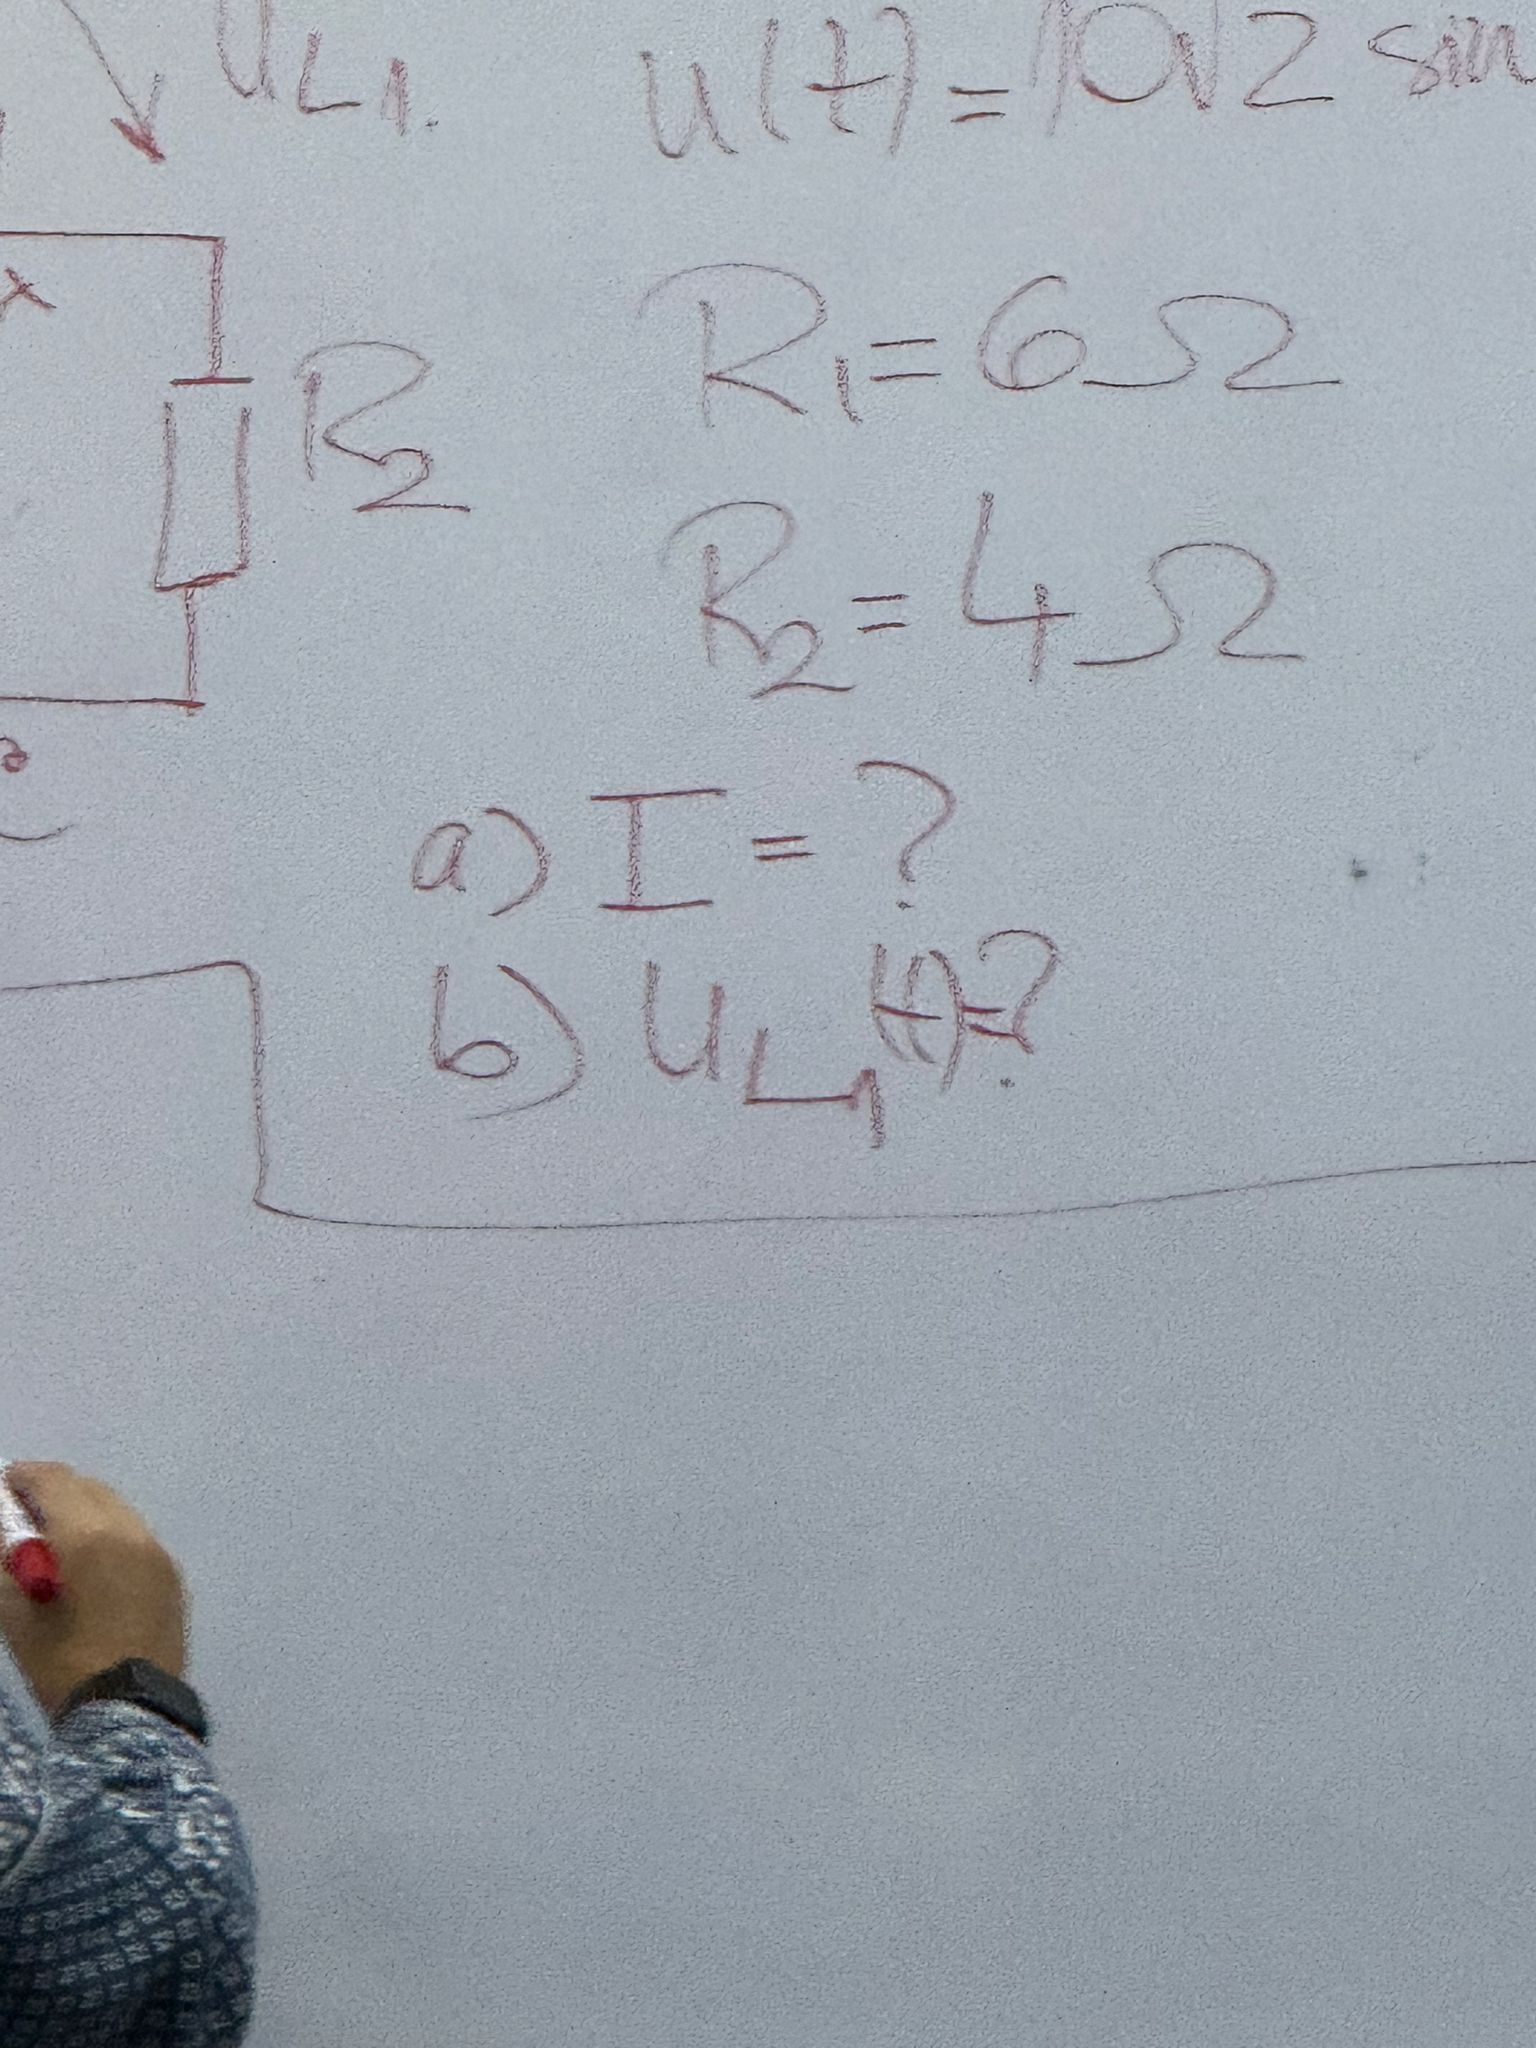 u_L1
u(t)=10√2 sin
R_2
R_1=6Ω
R_2=4Ω
a) I=?
b) u_L1(t)=?